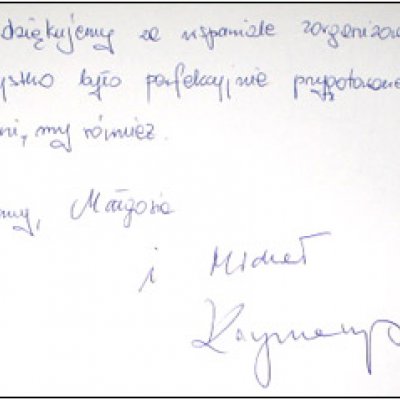 dziękujemy za wspaniale zorganizow
ystko było perfekcyjnie przygotowane
ni, my również.
my, Małgosia
i Michał